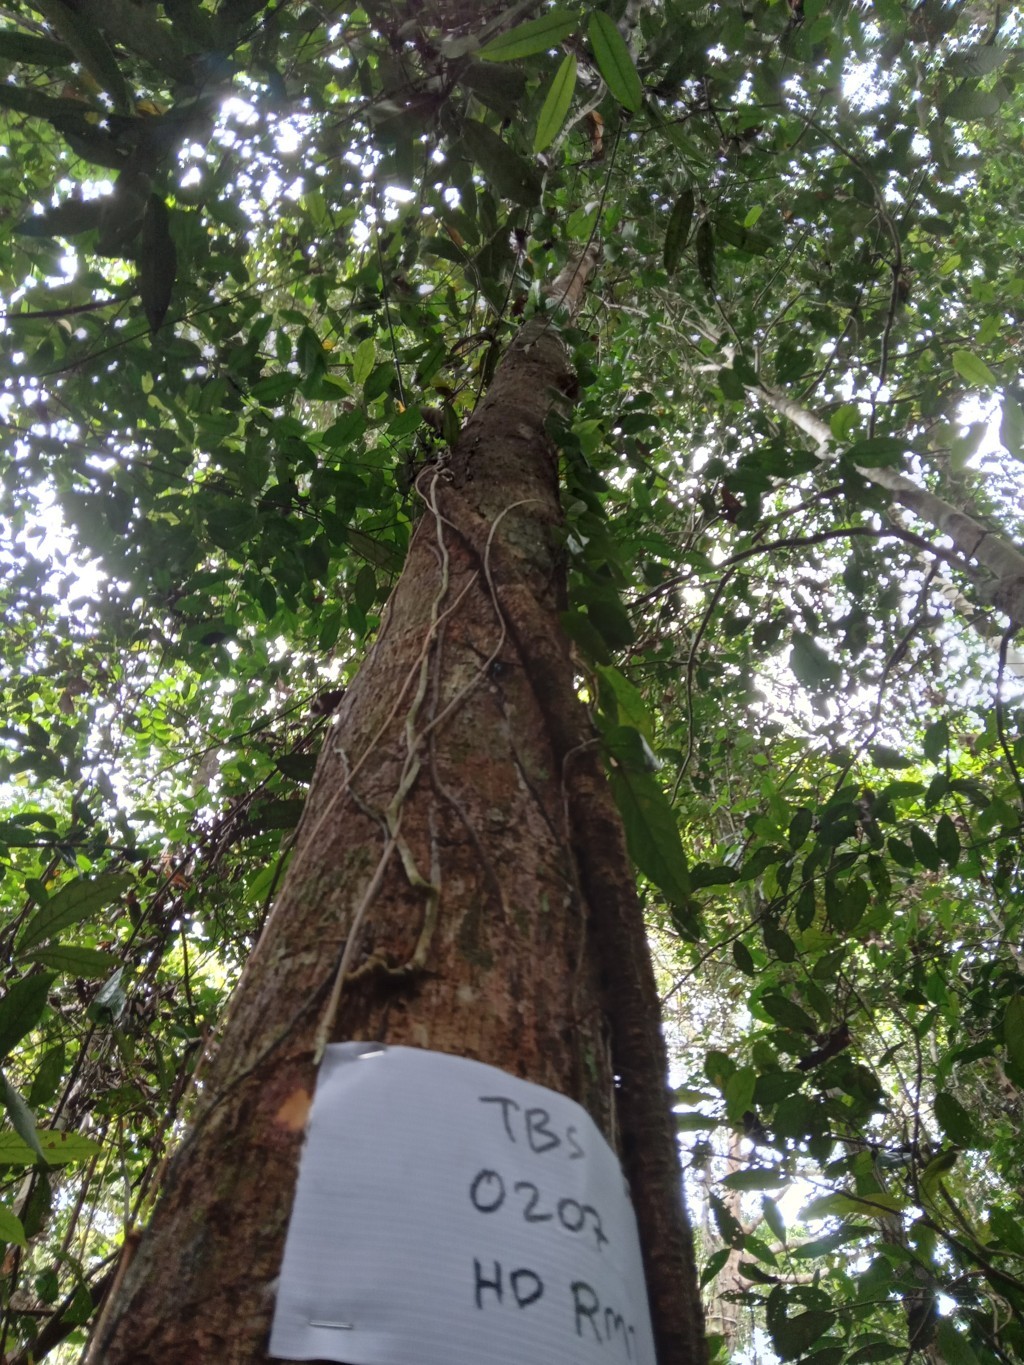 TBS
0207
HD Rm